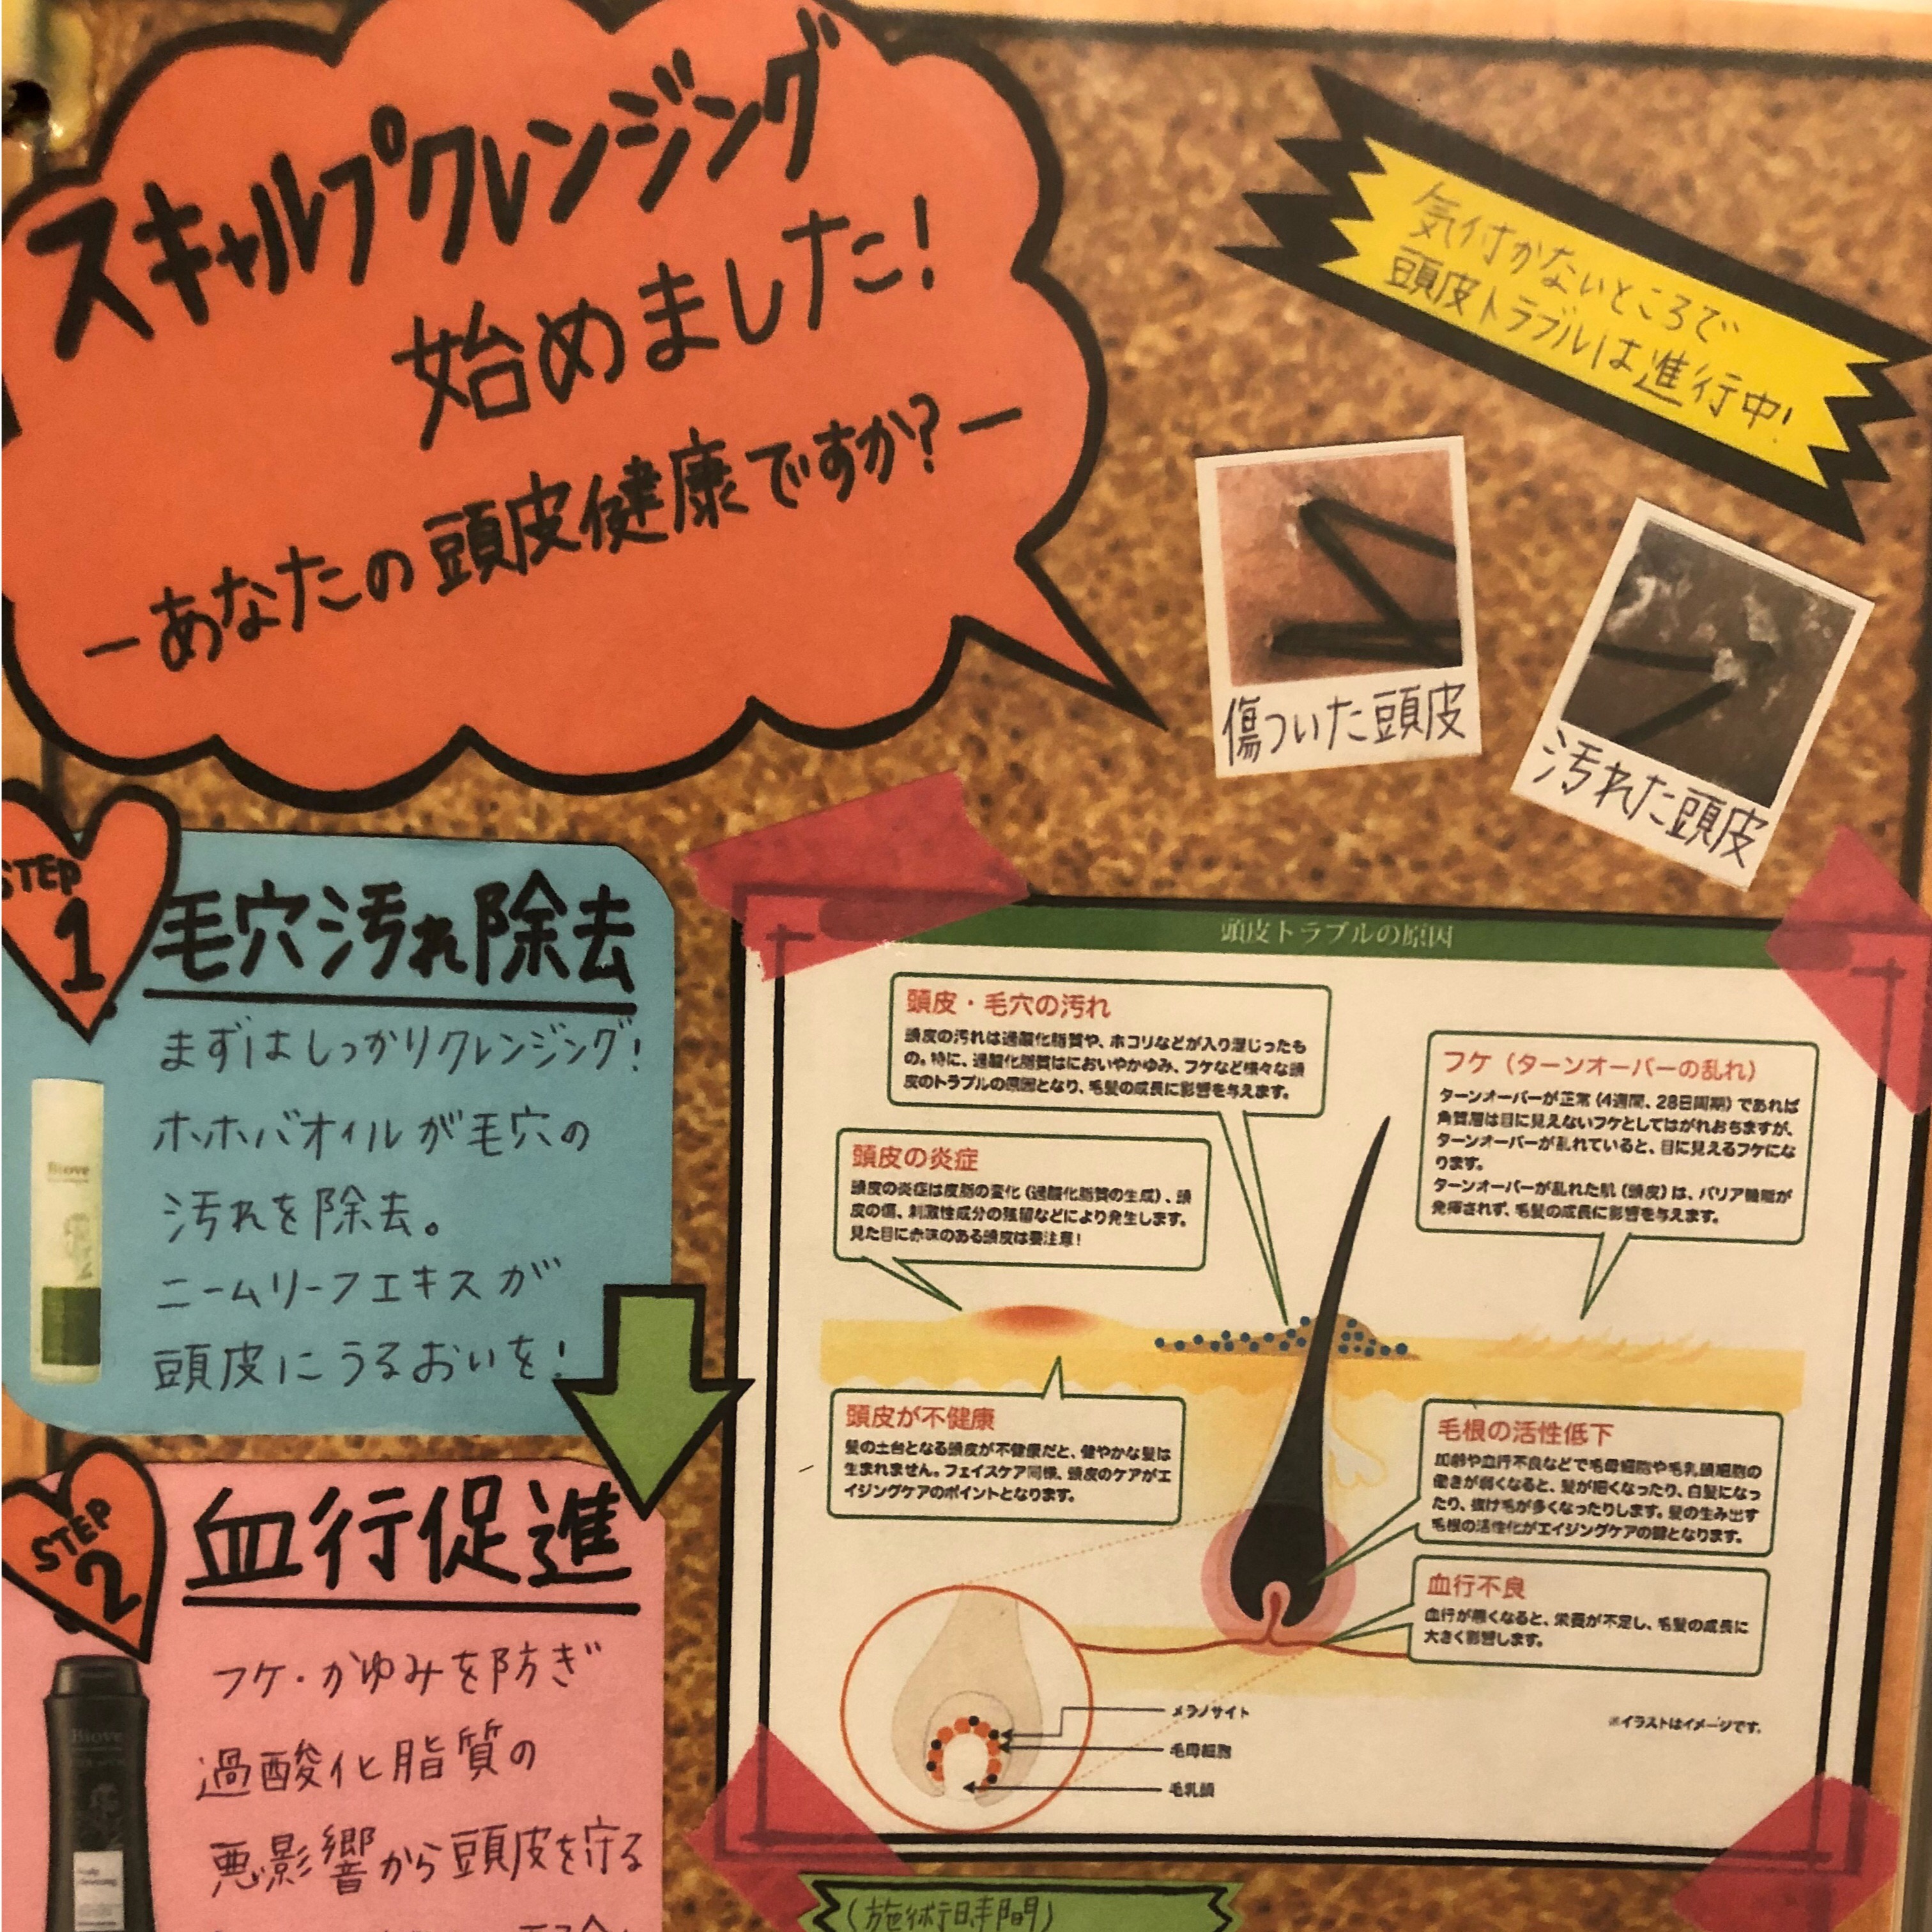 スキャルプクレンジング
始めました!
ーあなたの頭皮健康ですか?ー
気付かないところで
頭皮トラブルは進行中!
傷ついた頭皮
汚れた頭皮
STEP
1
毛穴汚れ除去
まずはしっかりクレンジング!
ホホバオイルが毛穴の
汚れを除去。
ニームリーフエキスが
頭皮にうるおいを!
Biove
STEP
2
血行促進
フケ・かゆみを防ぎ
過酸化脂質の
悪影響から頭皮を守る
Biove
頭皮トラブルの原因
頭皮・毛穴の汚れ
頭皮の汚れは過酸化脂質や、ホコリなどが入り混じったも
の。特に、過酸化脂質はにおいやかゆみ、フケなど様々な頭
皮のトラブルの原因となり、毛髪の成長に影響を与えます。
フケ(ターンオーバーの乱れ)
ターンオーバーが正常(4週間、28日周期)であれば
角質層は目に見えないフケとしてはがれおちますが、
ターンオーバーが乱れていると、目に見えるフケにな
ります。
ターンオーバーが乱れた肌(頭皮)は、バリア機能が
発揮されず、毛髪の成長に影響を与えます。
頭皮の炎症
頭皮の炎症は皮脂の変化(過酸化脂質の生成)、頭
皮の傷、刺激性成分の残留などにより発生します。
見た目に赤味のある頭皮は要注意!
頭皮が不健康
髪の土台となる頭皮が不健康だと、健やかな髪は
生まれません。フェイスケア同様、頭皮のケアがエ
イジングケアのポイントとなります。
毛根の活性低下
加齢や血行不良などで毛母細胞や毛乳頭細胞の
働きが弱くなると、髪が細くなったり、白髪になっ
たり、抜け毛が多くなったりします。髪の生み出す
毛根の活性化がエイジングケアの鍵となります。
血行不良
血行が悪くなると、栄養が不足し、毛髪の成長に
大きく影響します。
メラノサイト
毛母細胞
毛乳頭
※イラストはイメージです。
(施術時間)